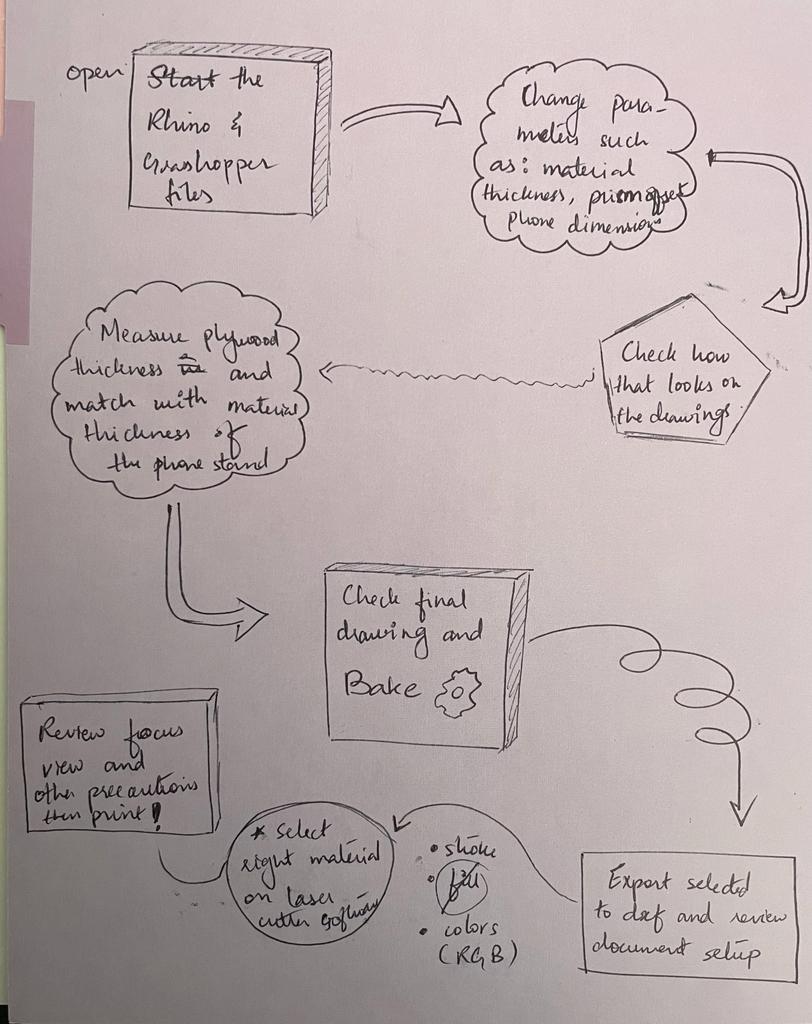 open Start the
Rhino &
Grasshopper
files
Change para-
meters such
as: material
thickness, prism offset
phone dimensions
Check how
that looks on
the drawings
Measure plywood
thickness and
match with material
thickness of
the phone stand
Check final
drawing and
Bake
Export selected
to dxf and review
document setup
• stroke
• fill
• colors
(RGB)
* select
right material
on laser
cutter software
Review focus
view and
other precautions
then print!